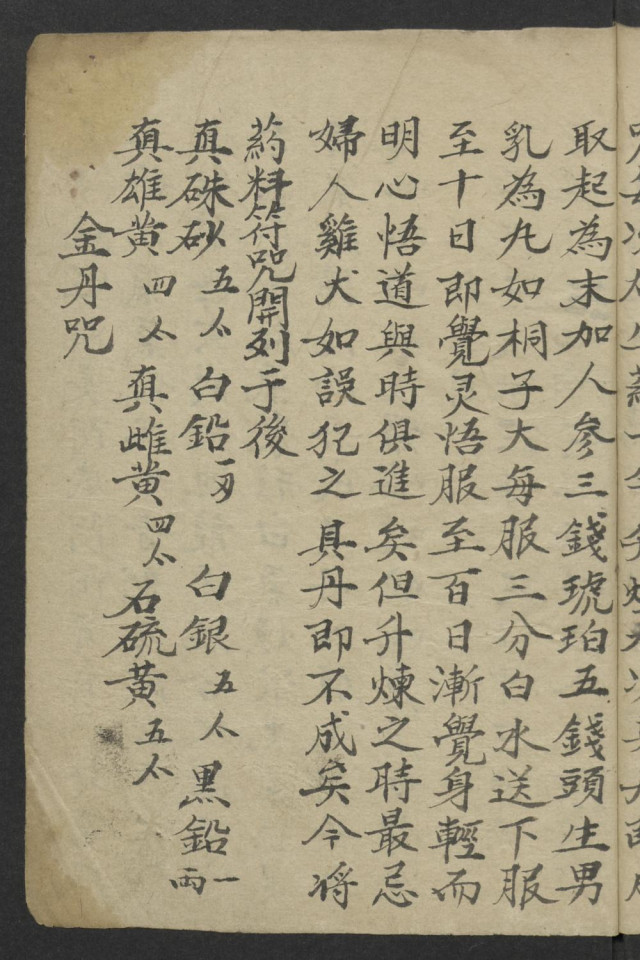 取起為末加人參三錢琥珀五錢頭生男
乳為丸如桐子大每服三分白水送下服
至十日即覺灵悟服至百日漸覺身輕而
明心悟道與時俱進矣但升煉之時最忌
婦人雞犬如誤犯之具丹即不成矣今将
葯料符咒開列于後
真硃砂五 白鉛 白銀五 黑鉛一両
真雄黄四 真雌黄四 石硫黄五
金丹咒